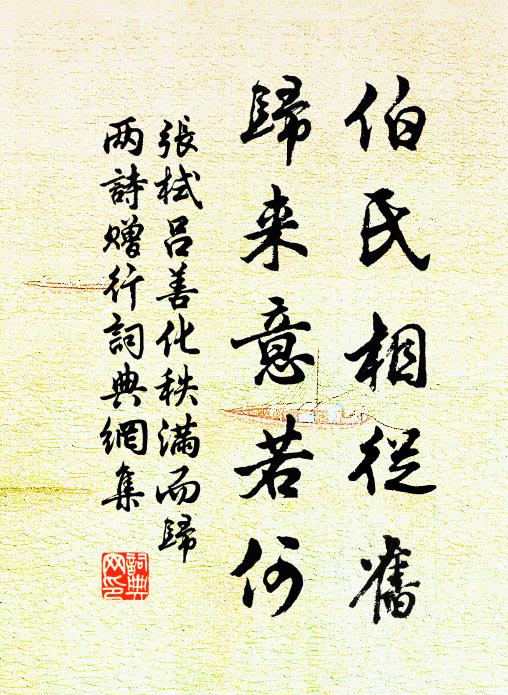 伯氏相從舊
歸来意若何
張栻吕善化秩滿而歸
两詩赠行詞典網集
詞典
网印